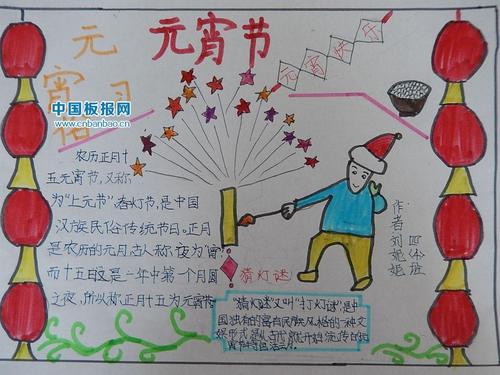 元宵节
元宵习俗
元宵快乐
中国板报网
www.cnbanbao.cn
农历正月十
五元宵节,又称
为"上元节"春灯节,是中国
汉族民俗传统节日。正月
是农历的元月,古人称夜为"宵"
而十五日又是一年中第一个月圆
之夜,所以称正月十五为元宵节
猜灯谜
作者刘姬姬
"猜灯谜"又叫"打灯谜",是中
国独有的富有民族风格的一种文
娱形式